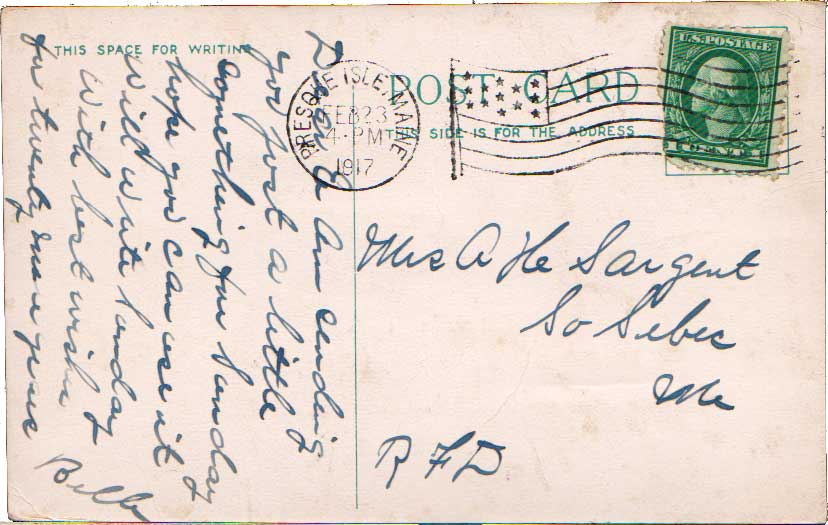 THIS SPACE FOR WRITING
POST CARD
THIS SIDE IS FOR THE ADDRESS
PRESQUE ISLE, MAINE
FEB 23
4-PM
1917
U.S. POSTAGE
1 CENT 1
Am sending
you just a little
something for Sunday
hope you can use it
Will write Sunday
With best wishes
for twenty one years
Belle
Mrs A H Sargent
So Sebec
Me
R F D